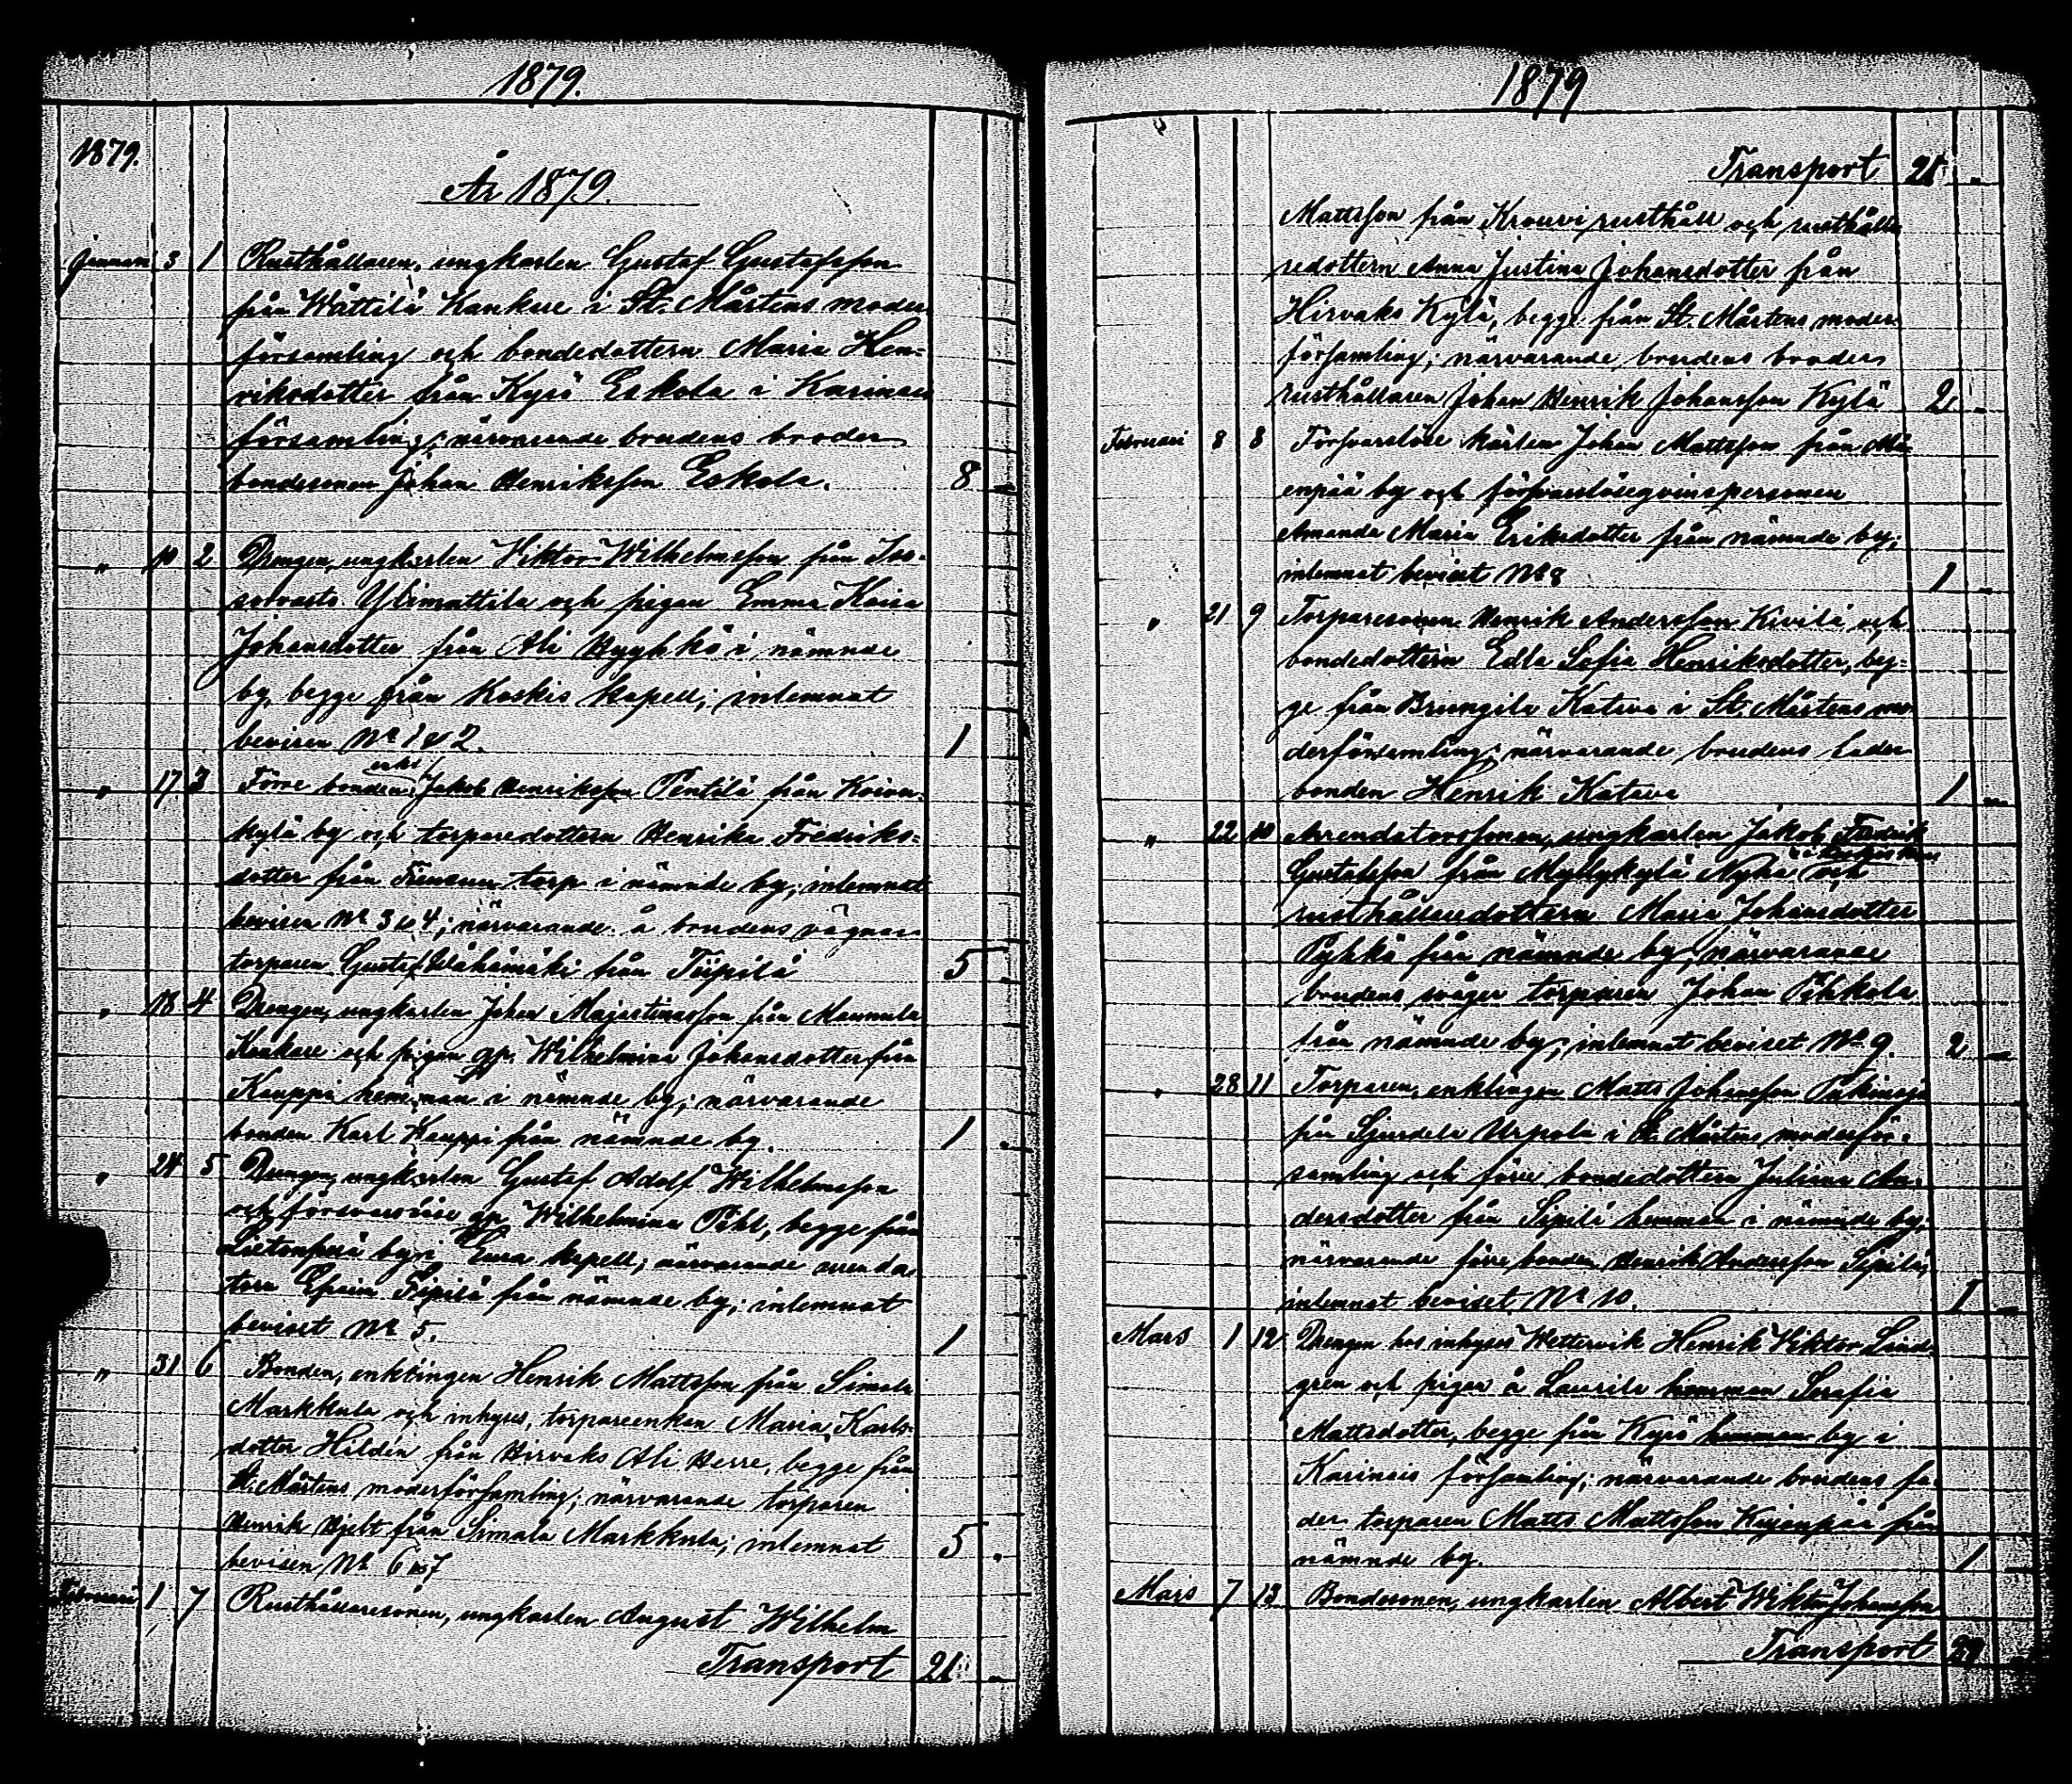 1879.
1879.
År 1879.
Januari 3 1 Rusthållaren, ungkarlen Gustaf Gustafsson
från Wättilä Kankare i St. Mårtens moder
församling och bondedottern Maria Hen-
riksdotter från Kyrö Eskola i Karinais
församling; närvarande brudens broder
bondesonen Johan Henriksson Eskola. 8 „
„ 10 2 Drengen, ungkarlen Viktor Wilhelmsson från
Ylimattila och pigan Emma Kaisa
Johansdotter från Ali i nämnde
by, begge från Koskis kapell; inlemnat
bevisen No 1 & 2. 1
„ 17 3 Förre bonden, enkl. Jakob Henriksson Pentilä från Koivu-
kylä by och torparedottern Henrika Fredriks-
dotter från torp i nämnde by; inlemnat
bevisen No 3 & 4; närvarande å brudens vägnar
torparen Gustaf Wähämäki från 5
„ 18 4 Drengen, ungkarlen Johan Majastinasson från Mannula
Kankare och pigan qp. Wilhelmina Johansdotter från
Kauppi hemman i nämnde by; närvarande
bonden Karl Kauppi från nämnde by. 1 „
„ 24 5 Drengen, ungkarlen Gustaf Adolf Wilhelmsson
och försvarslöse qp. Wilhelmina Pihl, begge från
Lietonperä by i Eura kapell; närvarande arrenda-
torn Efraim Sipilä från nämnde by; inlemnat
beviset No 5. 1
„ 31 6 Bonden, enklingen Henrik Mattsson från Simala
Markkula och inhyses, torpareenkan Maria Karls-
dotter Hildén från Hirvaks Ali Herre, begge från
St. Mårtens moderförsamling; närvarande torparen
Henrik Hjelt från Simala Markkula; inlemnat 5 „
bevisen No 6 & 7
Februari 1 7 Rusthållaresonen, ungkarlen August Wilhelm
Transport 21 „
1879
Transport 21 „
Mattsson från Krouvi rusthåll och rusthålla-
redottern Anna Justina Johansdotter från
Hirvaks Kylä, begge från St. Mårtens moder
församling; närvarande brudens broder
rusthållaren Johan Henrik Johansson Kylä 2 „
Februari 8 8 Försvarslöse karlen Johan Mattsson från Mä-
enpää by och försvarslöseqvinspersonen
Amanda Maria Eriksdotter från nämnde by;
inlemnat beviset No 8 1 „
„ 21 9 Torparesonen Henrik Andersson Kivilä och
bondedottern Edla Sofia Henriksdotter, beg-
ge från Katava i St. Mårtens mo-
derförsamling; närvarande brudens fader
bonden Henrik Katava 1 „
„ 22 10 Arrendatorssonen, ungkarlen Jakob Fredrik
Gustafsson från Myllykylä och
rusthållaredottern Maria Johansdotter
Pyhkä från nämnde by; närvarande
brudens svåger torparen Johan
från nämnde by; inlemnat beviset No 9. 2 „
„ 28 11 Torparen, enklingen Matts Johansson
från Urpola i St. Mårtens moderför-
samling och förre bondedottern Julina An-
dersdotter från Sipilä hemman i nämnde by;
närvarande förre bonden Henrik Andersson Sipilä;
inlemnat beviset No 10. 1 „
Mars 1 12 Drengen hos inhyses Wettervik Henrik Viktor Lind-
gren och pigan å Laurila hemman Serafia
Mattsdotter, begge från Kyrö hemman by i
Karinais församling; närvarande brudens fa-
der torparen Matts Mattsson från
nämnde by. 1 „
Mars 7 13 Bondesonen, ungkarlen Albert Wiktor Johansson
Transport 29 „